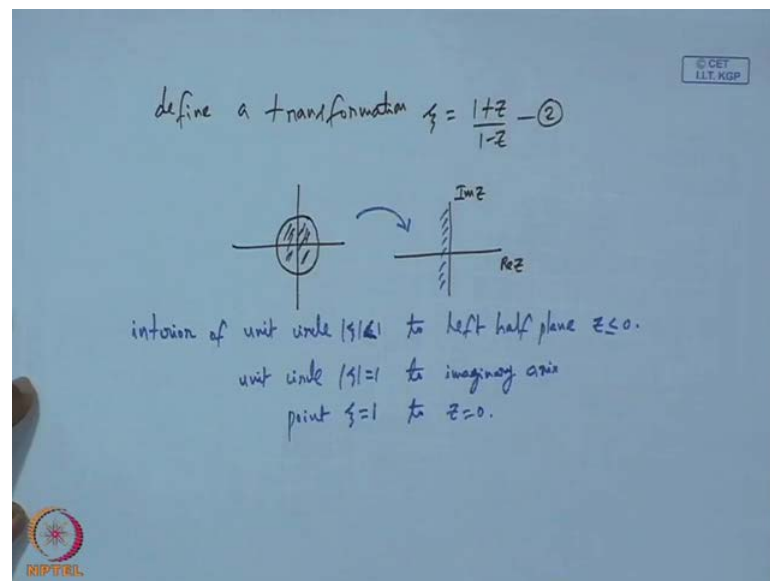 © CET
I.I.T. KGP
define a transformation ξ = (1+z)/(1-z) — ②
Im Z
Re Z
interior of unit circle |ξ|<1 to left half plane z ≤ 0.
unit circle |ξ|=1 to imaginary axis
point ξ=1 to z=0.
NPTEL